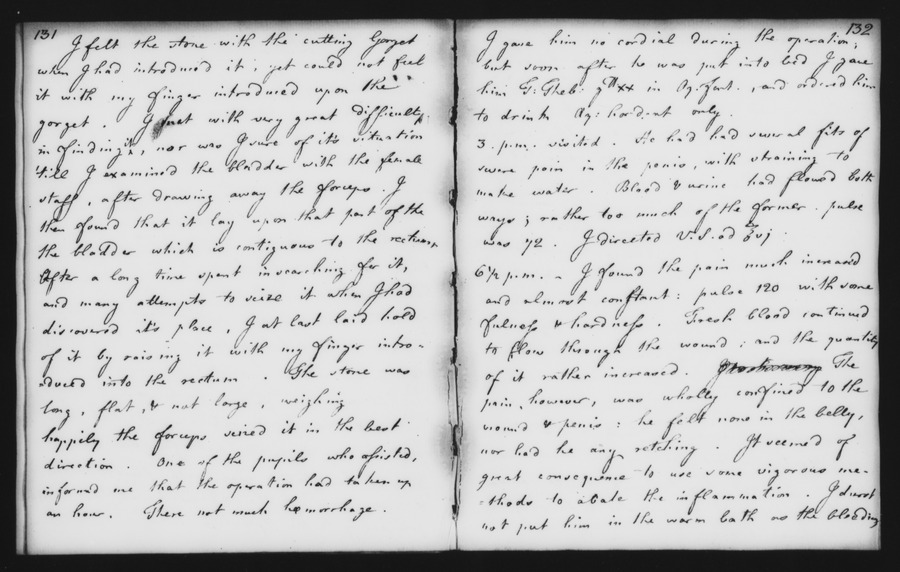 131
I felt the stone with the cutting Gorget
when I had introduced it, yet could not feel
it with my finger introduced upon the
gorget. I met with very great difficulty
in finding it, nor was I sure of it's situation
'till I examined the bladder with the female
staff, after drawing away the forceps. I
then found that it lay upon that part of the
the bladder which is contiguous to the rectum.
After a long time spent in searching for it,
and many attempts to seize it when I had
discovered it's place, I at last laid hold
of it by raising it with my finger intro-
-duced into the rectum. The stone was
long, flat, & not large, weighing
happily the forceps seized it in the best
direction. One of the pupils who assisted,
informed me that the operation had taken up
an hour. There not much hemorrhage.
132
I gave him no cordial during the operation;
but soon after he was put into bed I gave
him G: Theb: gtt xx in Aq. font., and ordered him
to drink Aq: hordeat only.
3. p.m. visited. He had had several fits of
severe pain in the penis, with straining to
make water. Blood & urine had flowed both
ways; rather too much of the former. pulse
was 72. I directed V.S. ad ℥vj.
6½ p.m. - I found the pain much increased
and almost constant: pulse 120 with some
fulness & hardness. Fresh blood continued
to flow through the wound; and the quantity
of it rather increased. The
pain, however, was wholly confined to the
wound & penis: he felt none in the belly,
nor had he any retching. It seemed of
great consequence to use some vigorous me-
-thods to abate the inflammation. I durst
not put him in the warm bath as the bleeding